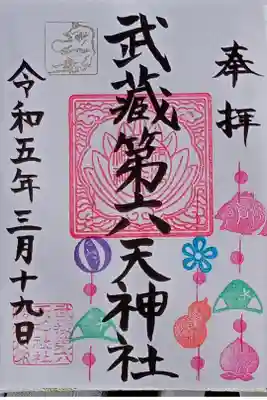 奉拝
武蔵第六天神社
令和五年三月十九日